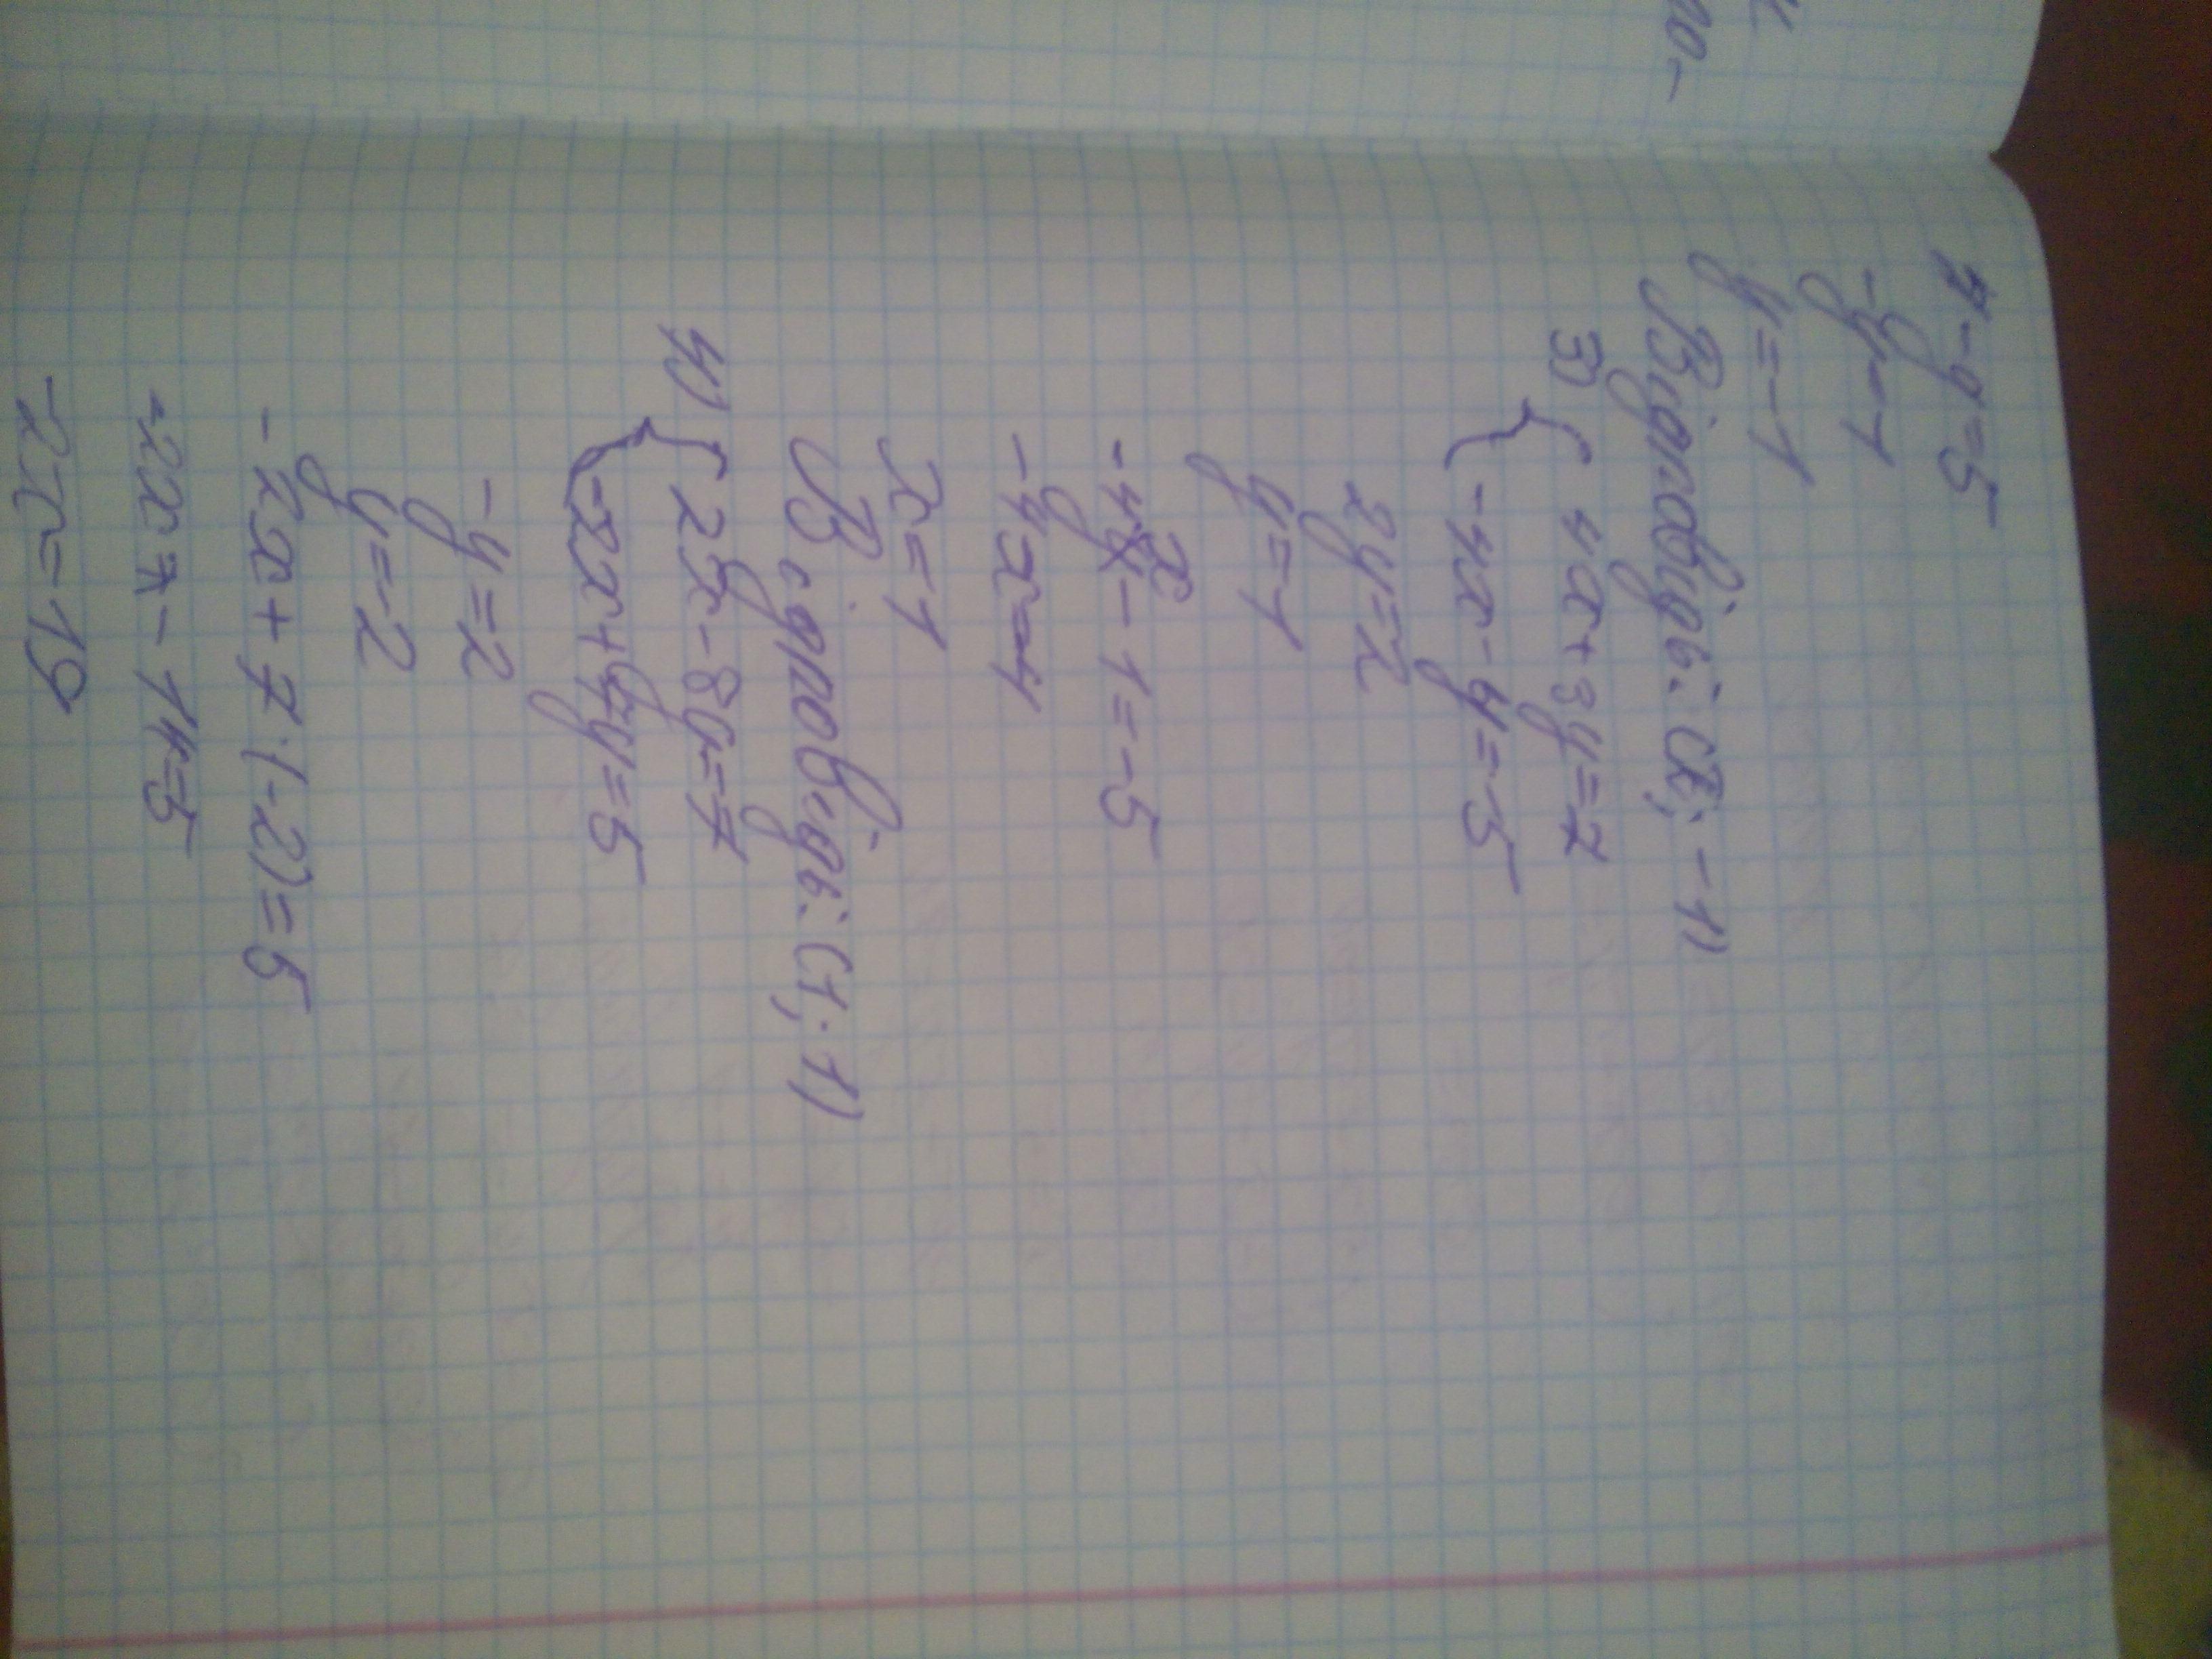 4-y=5
-y=1
y=-1
Відповідь: (2; -1)
3) { 4x+3y=7
-4x-y=-5
2y=2
y=1
-4x-1=-5
-4x=-4
x=1
Відповідь: (1; 1)
4) { 2x-8y=-7
-2x+7y=5
-y=2
y=-2
-2x+7·(-2)=5
-2x-14=5
-2x=19